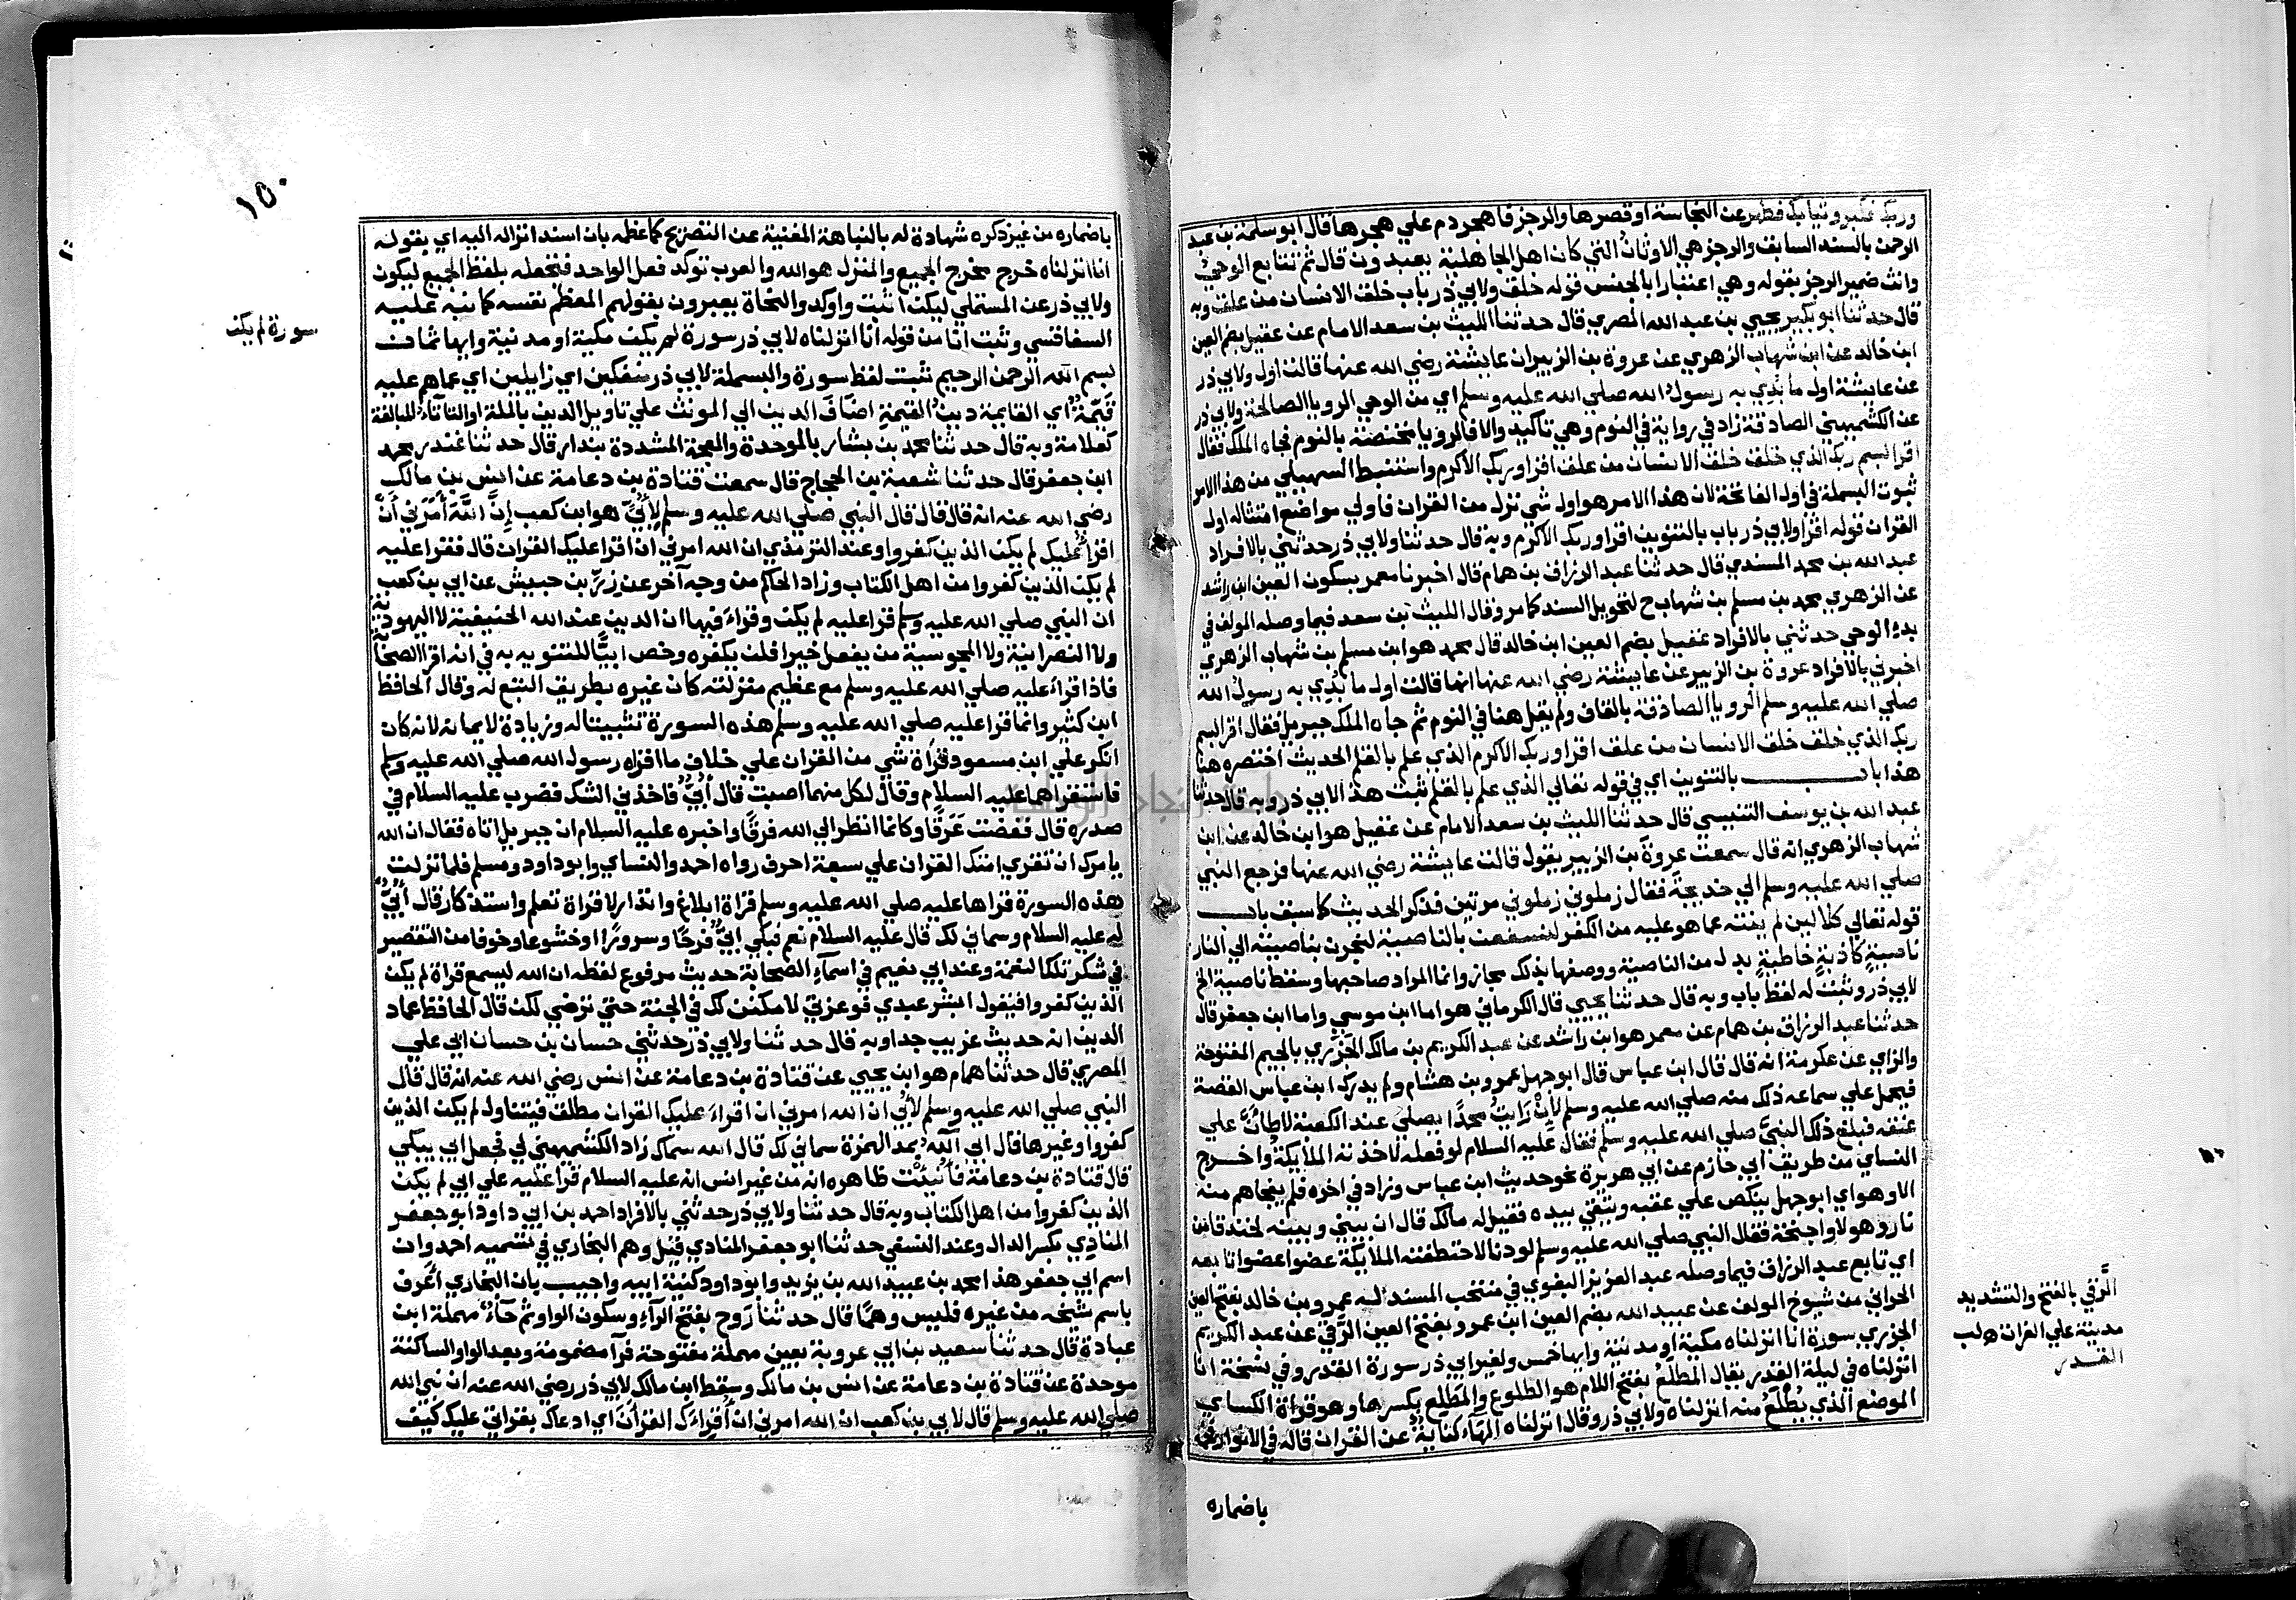 وربك فكبر وثيابك فطهر عن النجاسة او قصرها والرجز فاهجر دم علي هجرها قال ابو سلمة بن عبد
الرحمن بالسند السابق والرجز هي الاوثان التي كان اهل الجاهلية يعبدون قال ثم تتابع الوحي
وانث ضمير الرجز بقوله وهي اعتبارا بالجنس قوله خلق ولابي ذر باب خلق الانسان من علق وبه
قال حدثنا ابو بكير يحيي بن عبد الله المصري قال حدثنا الليث بن سعد الامام عن عقيل بضم العين
ابن خالد عن ابن شهاب الزهري عن عروة بن الزبير ان عايشة رضي الله عنها قالت اول ولابي ذر
عن عايشة اول ما بدي به رسول الله صلي الله عليه وسلم اي من الوحي الرويا الصالحة ولابي ذر
عن الكشميهني الصادقة زاد في رواية في النوم وهي تاكيد والا فالرويا مختصة بالنوم فجاه الملك فقال
اقرا بسم ربك الذي خلق خلق الانسان من علق اقرا وربك الاكرم واستنبط السهيلي من هذا الامر
ثبوت البسملة في اول الفاتحة لان هذا الامر هو اول شي نزل من القران فاولي مواضع امتثاله اول
القران قوله اقرا ولابي ذر باب بالتنوين اقرا وربك الاكرم وبه قال حدثنا ولابي ذر حدثني بالافراد
عبد الله بن محمد المسندي قال حدثنا عبد الرزاق بن همام قال اخبرنا معمر بسكون العين ابن راشد
عن الزهري محمد بن مسلم بن شهاب ح لتحويل السند كما مر وقال الليث بن سعد فيما وصله المولف في
بدء الوحي حدثني بالافراد عقيل بضم العين ابن خالد قال محمد هو ابن مسلم بن شهاب الزهري
اخبرني بالافراد عروة بن الزبير عن عايشة رضي الله عنها انها قالت اول ما بدي به رسول الله
صلي الله عليه وسلم الرويا الصادقة بالقاف ولم يقل هنا في النوم ثم جاه الملك جبريل فقال اقرا بسم
ربك الذي خلق خلق الانسان من علق اقرا وربك الاكرم الذي علم بالقلم الحديث اختصره هنا
هذا باب بالتنوين اي في قوله تعالي الذي علم بالقلم ثبت هذا لابي ذر وبه قال حدثنا
عبد الله بن يوسف التنيسي قال حدثنا الليث بن سعد الامام عن عقيل هو ابن خالد عن ابن
شهاب الزهري انه قال سمعت عروة بن الزبير يقول قالت عايشة رضي الله عنها فرجع النبي
صلي الله عليه وسلم الي خديجة فقال زملوني زملوني مرتين فذكر الحديث كما سبق باب
قوله تعالي كلا لين لم ينته عما هو عليه من الكفر لنسفعن بالناصية لنجرن بناصيته الي النار
ناصية كاذبة خاطية بدل من الناصية ووصفها بذلك مجاز وانما المراد صاحبها وسقط ناصية الخ
لابي ذر وثبت له لفظ باب وبه قال حدثنا يحيي قال الكرماني هو اما ابن موسي واما ابن جعفر قال
حدثنا عبد الرزاق بن همام عن معمر هو ابن راشد عن عبد الكريم بن مالك الجزري بالجيم المفتوحة
والزاي عن عكرمة انه قال قال ابن عباس قال ابو جهل عمرو بن هشام ولم يدرك ابن عباس القصة
فيحمل علي سماعه ذلك منه صلي الله عليه وسلم لان رايت محمدا يصلي عند الكعبة لاطان علي
عنقه فبلغ ذلك النبي صلي الله عليه وسلم فقال عليه السلام لو فعله لاخذته الملايكة واخرج
النساي من طريق ابي حازم عن ابي هريرة نحو حديث ابن عباس وزاد في اخره فلم يفجاهم منه
الا وهو اي ابو جهل ينكص علي عقبه ويتقي بيده فقيل له مالك قال ان بيني وبينه لخندقا من
نار وهولا واجنحة فقال النبي صلي الله عليه وسلم لو دنا لاختطفته الملايكة عضوا عضوا تابعه
اي تابع عبد الرزاق فيما وصله عبد العزيز البغوي في منتخب المسند له عمرو بن خالد بفتح العين
الحراني من شيوخ المولف عن عبيد الله بضم العين ابن عمرو بفتح العين الرقي عن عبد الكريم
الجزري سورة انا انزلناه مكية او مدنية وايها خمس ولغير ابي ذر سورة القدر وفي نسخة انا
انزلناه في ليلة القدر يقال المطلع بفتح اللام هو الطلوع والمطلع بكسرها وهو قراة الكساي
الموضع الذي يطلع منه انزلناه ولابي ذر وقال انزلناه الهاء كناية عن القران قاله في الانوار فخمه
الرقي بالفتح والتشديد
مدينة علي الفرات هـ لب
القدر
باضماره
١٥٠
باضماره من غير ذكره شهادة له بالنباهة المغنية عن التصريح كما عظمه بان اسند انزاله اليه اي بقوله
انا انزلناه خرج مخرج الجميع والمنزل هو الله والعرب توكد فعل الواحد فتجعله بلفظ الجميع ليكون
ولابي ذر عن المستملي ليكن اثبت واوكد والنحاة يعبرون بقولهم المعظم نفسه كما نبه عليه
السفاقسي وثبت انا من قوله انا انزلناه لابي ذر سورة لم يكن مكية او مدنية وايها ثمان
سورة لم يكن
بسم الله الرحمن الرحيم ثبت لفظ سورة والبسملة لابي ذر منفكين اي زايلين اي عما هم عليه
قيمة اي القايمة دين القيمة اضاف الدين الي المونث علي تاويل الدين بالملة او التاء تاء المبالغة
كعلامة وبه قال حدثنا محمد بن بشار بالموحدة والمعجمة المشددة بندار قال حدثنا غندر محمد
ابن جعفر قال حدثنا شعبة بن الحجاج قال سمعت قتادة بن دعامة عن انس بن مالك
رضي الله عنه انه قال قال النبي صلي الله عليه وسلم لأبي هو ابن كعب إن الله أمرني أن
اقرا عليك لم يكن الذين كفروا وعند الترمذي ان الله امرني ان اقرا عليك القران قال فقرا عليه
لم يكن الذين كفروا من اهل الكتاب وزاد الحاكم من وجه آخر عن زر بن حبيش عن ابي بن كعب
ان النبي صلي الله عليه وسلم قرا عليه لم يكن وقراء فيها ان الدين عند الله الحنيفية لا اليهودية
ولا النصرانية ولا المجوسية من يفعل خيرا فلن يكفره وخص ابيا للتنويه به في انه اقرا الصحابة
فاذا قراء عليه صلي الله عليه وسلم مع عظيم منزلته كان غيره بطريق التبع له وقال الحافظ
ابن كثير وانما قرا عليه صلي الله عليه وسلم هذه السورة تثبيتا له وزيادة لايمانه لانه كان
انكر علي ابن مسعود قراة شي من القران علي خلاف ما اقراه رسول الله صلي الله عليه وسلم
فاستقراهما عليه السلام وقال لكل منهما اصبت قال أبي فاخذني الشك فضرب عليه السلام في
صدره قال ففضت عرقا وكانما انظر الي الله فرقا واخبره عليه السلام ان جبريل اتاه فقال ان الله
يامرك ان تقري امتك القران علي سبعة احرف رواه احمد والنساي وابو داود ومسلم فلما نزلت
هذه السورة قراها عليه صلي الله عليه وسلم قراة ابلاغ وانذار لا قراة تعلم واستذكار قال أبي
له عليه السلام وسماني لك قال عليه السلام نعم فبكي ابي فرحا وسرورا او خشوعا وخوفا من التقصير
في شكر تلك النعمة وعند ابي نعيم في اسماء الصحابة حديث مرفوع لفظه ان الله ليسمع قراة لم يكن
الذين كفروا فيقول ابشر عبدي فوعزتي لامكنن لك في الجنة حتي ترضي لكن قال الحافظ عماد
الدين انه حديث غريب جدا وبه قال حدثنا ولابي ذر حدثني حسان بن حسان ابي علي
المصري قال حدثنا همام هو ابن يحيي عن قتادة بن دعامة عن انس رضي الله عنه انه قال قال
النبي صلي الله عليه وسلم لأبي ان الله امرني ان اقراء عليك القران مطلق فيتناول لم يكن الذين
كفروا وغيرها قال ابي آلله بمد الهمزة سماني لك قال الله سماك زاد الكشميهني لي فجعل ابي يبكي
قال قتادة بن دعامة فأنبئت ظاهره انه من غير انس انه عليه السلام قرا عليه علي ابي لم يكن
الذين كفروا من اهل الكتاب وبه قال حدثنا ولابي ذر حدثني بالافراد احمد بن ابي داود ابو جعفر
المنادي بكسر الدال وعند النسفي حدثنا ابو جعفر المنادي قيل وهم البخاري في تسميه احمد وان
اسم ابي جعفر هذا محمد بن عبيد الله بن يزيد وابو داود كنية ابيه واجيب بان البخاري أعرف
باسم شيخه من غيره فليس وهما قال حدثنا روح بفتح الراء وسكون الواو ثم حاء مهملة ابن
عبادة قال حدثنا سعيد بن ابي عروبة بعين مهملة مفتوحة فرا مضمومة وبعد الواو الساكنة
موحدة عن قتادة بن دعامة عن انس بن مالك وسقط ابن مالك لابي ذر رضي الله عنه ان نبي الله
صلي الله عليه وسلم قال لابي بن كعب ان الله امرني ان أقرءك القرآن اي اعلمك بقراتي عليك كيف